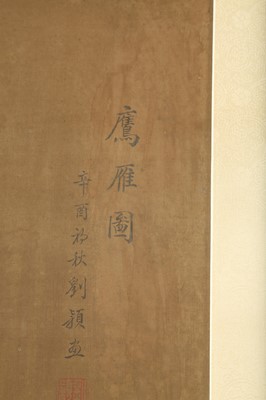 鷹雁圖
辛酉初秋劉穎畫